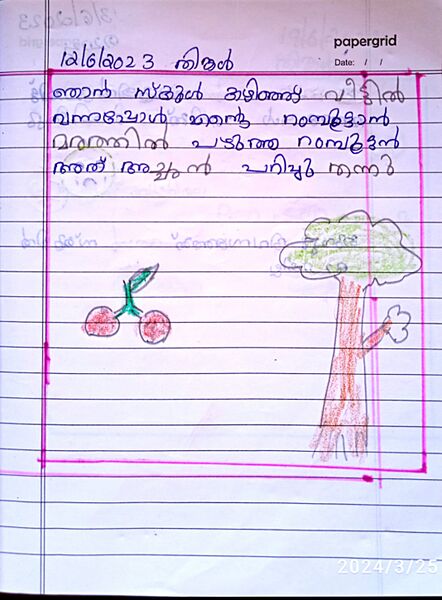 papergrid
Date: / /
12/6/2023 തിങ്കൾ
ഞാൻ സ്കൂൾ കഴിഞ്ഞ് വീട്ടിൽ
വന്നപ്പോൾ എന്റെ റംബൂട്ടാൻ
മരത്തിൽ പഴുത്ത റംബൂട്ടൻ
അത് അച്ചൻ പറിച്ചു തന്നു
2024/3/25